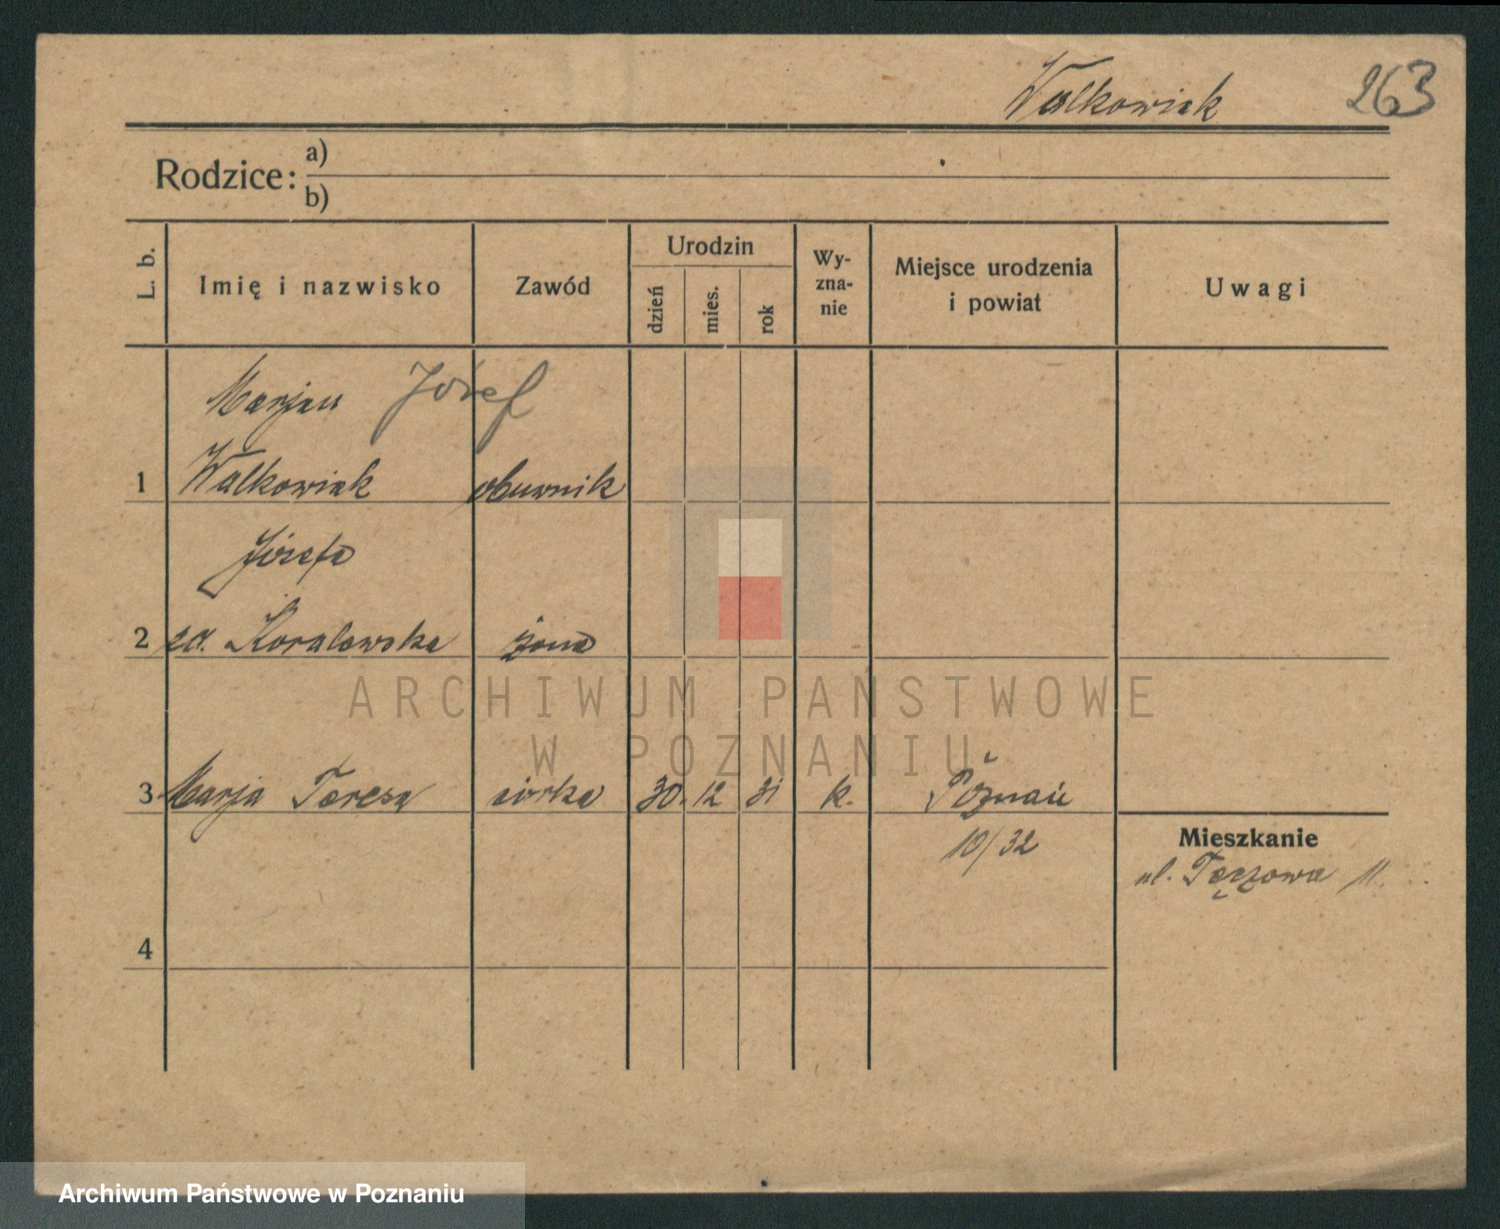 Walkowiak 263
Rodzice: a)
b)
L. b.
Imię i nazwisko
Zawód
Urodzin
dzień
mies.
rok
Wy-
zna-
nie
Miejsce urodzenia
i powiat
Uwagi
Marjan Józef
1 Walkowiak obuwnik
Józefa
2 zd. Koralewska żona
3 Marja Teresa córka 30. 12 31 k. Poznań
10/32
Mieszkanie
ul. Tęczowa 11.
4
ARCHIWUM PAŃSTWOWE
W POZNANIU
Archiwum Państwowe w Poznaniu